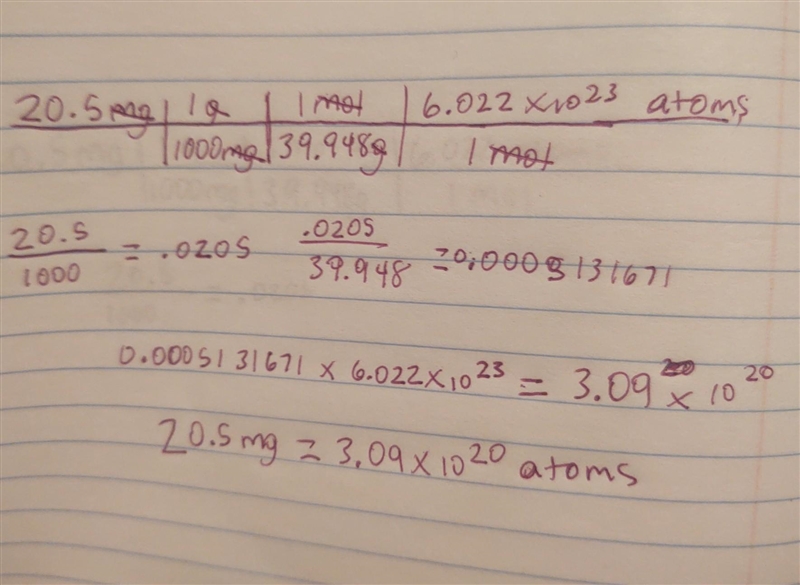 20.5 mg | 1 g | 1 mol | 6.022 × 10²³ atoms
1000 mg | 39.948 g | 1 mol
20.5/1000 = .0205 .0205/39.948 = 0.0005131671
0.0005131671 × 6.022 × 10²³ = 3.09 × 10²⁰
20.5 mg = 3.09 × 10²⁰ atoms